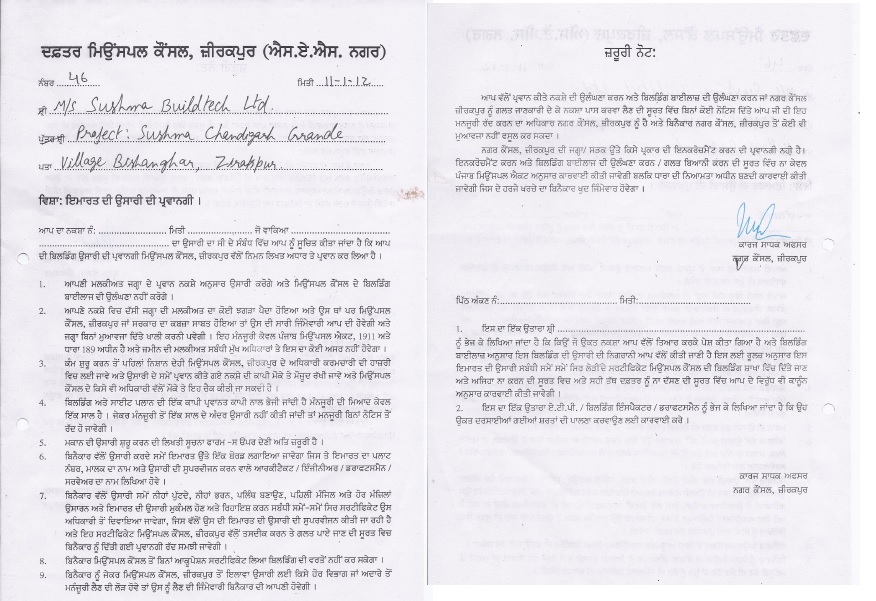 ਦਫ਼ਤਰ ਮਿਉਂਸਪਲ ਕੌਂਸਲ, ਜ਼ੀਰਕਪੁਰ (ਐਸ.ਏ.ਐਸ. ਨਗਰ)
ਨੰਬਰ 46 ਮਿਤੀ 11-1-12
ਸ਼੍ਰੀ M/s Sushma Buildtech Ltd.
ਪੁੱਤਰ ਸ਼੍ਰੀ Project: Sushma Chandigarh Grande
ਪਤਾ Village Bishanghar, Zirakpur.
ਵਿਸ਼ਾ: ਇਮਾਰਤ ਦੀ ਉਸਾਰੀ ਦੀ ਪ੍ਰਵਾਨਗੀ ।
ਆਪ ਦਾ ਨਕਸ਼ਾ ਨੰ: .................. ਮਿਤੀ .................. ਜੋ ਵਾਕਿਆ ..................
.................. ਦਾ ਉਸਾਰੀ ਦਾ ਸੀ ਦੇ ਸੰਬੰਧ ਵਿੱਚ ਆਪ ਨੂੰ ਸੂਚਿਤ ਕੀਤਾ ਜਾਂਦਾ ਹੈ ਕਿ ਆਪ
ਦੀ ਬਿਲਡਿੰਗ ਉਸਾਰੀ ਦੀ ਪ੍ਰਵਾਨਗੀ ਮਿਉਂਸਪਲ ਕੌਂਸਲ, ਜ਼ੀਰਕਪੁਰ ਵੱਲੋਂ ਨਿਮਨ ਲਿਖਤ ਅਧਾਰ ਤੇ ਪ੍ਰਵਾਨ ਕਰ ਲਿਆ ਹੈ ।
1. ਆਪਣੀ ਮਲਕੀਅਤ ਜਗ੍ਹਾ ਦੇ ਪ੍ਰਵਾਨ ਨਕਸ਼ੇ ਅਨੁਸਾਰ ਉਸਾਰੀ ਕਰੋਗੇ ਅਤੇ ਮਿਉਂਸਪਲ ਕੌਂਸਲ ਦੇ ਬਿਲਡਿੰਗ
ਬਾਈਲਾਜ ਦੀ ਉਲੰਘਣਾ ਨਹੀਂ ਕਰੋਗੇ ।
2. ਆਪਣੇ ਨਕਸ਼ੇ ਵਿੱਚ ਦੱਸੀ ਜਗ੍ਹਾ ਦੀ ਮਲਕੀਅਤ ਦਾ ਕੋਈ ਝਗੜਾ ਪੈਦਾ ਹੋਇਆ ਅਤੇ ਉਸ ਥਾਂ ਪਰ ਮਿਉਂਸਪਲ
ਕੌਂਸਲ, ਜ਼ੀਰਕਪੁਰ ਜਾਂ ਸਰਕਾਰ ਦਾ ਕਬਜ਼ਾ ਸਾਬਤ ਹੋਇਆ ਤਾਂ ਉਸ ਦੀ ਸਾਰੀ ਜਿੰਮੇਵਾਰੀ ਆਪ ਦੀ ਹੋਵੇਗੀ ਅਤੇ
ਜਗ੍ਹਾ ਬਿਨਾਂ ਮੁਆਵਜਾ ਦਿੱਤੇ ਖਾਲੀ ਕਰਨੀ ਪਵੇਗੀ । ਇਹ ਮੰਨਜੂਰੀ ਕੇਵਲ ਪੰਜਾਬ ਮਿਉਂਸਪਲ ਐਕਟ, 1911 ਅਤੇ
ਧਾਰਾ 189 ਅਧੀਨ ਹੈ ਅਤੇ ਜਮੀਨ ਦੀ ਮਲਕੀਅਤ ਸਬੰਧੀ ਮੁੱਖ ਅਧਿਕਾਰਾਂ ਤੇ ਇਸ ਦਾ ਕੋਈ ਅਸਰ ਨਹੀਂ ਹੋਵੇਗਾ ।
3. ਕੰਮ ਸ਼ੁਰੂ ਕਰਨ ਤੋਂ ਪਹਿਲਾਂ ਨਿਸ਼ਾਨ ਦੇਹੀ ਮਿਉਂਸਪਲ ਕੌਂਸਲ, ਜ਼ੀਰਕਪੁਰ ਦੇ ਅਧਿਕਾਰੀ ਕਰਮਚਾਰੀ ਦੀ ਹਾਜ਼ਰੀ
ਵਿਚ ਲਈ ਜਾਵੇ ਅਤੇ ਉਸਾਰੀ ਦੇ ਸਮੇਂ ਪ੍ਰਵਾਨ ਕੀਤੇ ਗਏ ਨਕਸ਼ੇ ਦੀ ਕਾਪੀ ਮੌਕੇ ਤੇ ਮੌਜੂਦ ਰੱਖੀ ਜਾਵੇ ਅਤੇ ਮਿਉਂਸਪਲ
ਕੌਂਸਲ ਦੇ ਕਿਸੇ ਵੀ ਅਧਿਕਾਰੀ ਵੱਲੋਂ ਮੌਕੇ ਤੇ ਇਹ ਚੈਕ ਕੀਤੀ ਜਾ ਸਕਦੀ ਹੈ ।
4. ਬਿਲਡਿੰਗ ਅਤੇ ਸਾਈਟ ਪਲਾਨ ਦੀ ਇੱਕ ਕਾਪੀ ਪ੍ਰਵਾਨਤ ਕਾਪੀ ਨਾਲ ਭੇਜੀ ਜਾਂਦੀ ਹੈ ਮੰਨਜੂਰੀ ਦੀ ਮਿਆਦ ਕੇਵਲ
ਇੱਕ ਸਾਲ ਹੈ । ਜੇਕਰ ਮੰਨਜੂਰੀ ਤੋਂ ਇੱਕ ਸਾਲ ਦੇ ਅੰਦਰ ਉਸਾਰੀ ਨਹੀਂ ਕੀਤੀ ਜਾਂਦੀ ਤਾਂ ਮਨਜੂਰੀ ਬਿਨਾਂ ਨੋਟਿਸ ਤੋਂ
ਰੱਦ ਹੋ ਜਾਵੇਗੀ ।
5. ਮਕਾਨ ਦੀ ਉਸਾਰੀ ਸ਼ੁਰੂ ਕਰਨ ਦੀ ਲਿਖਤੀ ਸੂਚਨਾ ਫਾਰਮ -ਸ ਉਪਰ ਦੇਣੀ ਅਤਿ ਜ਼ਰੂਰੀ ਹੈ ।
6. ਬਿਨੈਕਾਰ ਵੱਲੋਂ ਉਸਾਰੀ ਕਰਦੇ ਸਮੇਂ ਇਮਾਰਤ ਉਤੇ ਇੱਕ ਬੋਰਡ ਲਗਾਇਆ ਜਾਵੇਗਾ ਜਿਸ ਤੇ ਇਮਾਰਤ ਦਾ ਪਲਾਟ
ਨੰਬਰ, ਮਾਲਕ ਦਾ ਨਾਮ ਅਤੇ ਉਸਾਰੀ ਦੀ ਸੁਪਰਵੀਜਨ ਕਰਨ ਵਾਲੇ ਆਰਕੀਟੈਕਟ / ਇੰਜੀਨੀਅਰ / ਡਰਾਫਟਸਮੈਨ /
ਸਰਵੇਅਰ ਦਾ ਨਾਮ ਲਿਖਿਆ ਹੋਵੇ ।
7. ਬਿਨੈਕਾਰ ਵੱਲੋਂ ਉਸਾਰੀ ਸਮੇਂ ਨੀਹਾਂ ਪੁੱਟਦੇ, ਨੀਹਾਂ ਭਰਨ, ਪਲਿੰਥ ਬਣਾਉਣ, ਪਹਿਲੀ ਮੰਜਿਲ ਅਤੇ ਹੋਰ ਮੰਜ਼ਿਲਾਂ
ਉਸਾਰਨ ਅਤੇ ਇਮਾਰਤ ਦੀ ਉਸਾਰੀ ਮੁਕੰਮਲ ਹੋਣ ਅਤੇ ਰਿਹਾਇਸ਼ ਕਰਨ ਸਬੰਧੀ ਸਮੇਂ-ਸਮੇਂ ਸਿਰ ਸਰਟੀਫਿਕੇਟ ਉਸ
ਅਧਿਕਾਰੀ ਤੋਂ ਦਿਵਾਇਆ ਜਾਵੇਗਾ, ਜਿਸ ਵੱਲੋਂ ਉਸ ਦੀ ਇਮਾਰਤ ਦੀ ਉਸਾਰੀ ਦੀ ਸੁਪਰਵੀਜਨ ਕੀਤੀ ਜਾ ਰਹੀ ਹੈ
ਅਤੇ ਇਹ ਸਰਟੀਫਿਕੇਟ ਮਿਉਂਸਪਲ ਕੌਂਸਲ, ਜ਼ੀਰਕਪੁਰ ਵੱਲੋਂ ਤਸਦੀਕ ਕਰਨ ਤੇ ਗਲਤ ਪਾਏ ਜਾਣ ਦੀ ਸੂਰਤ ਵਿਚ
ਬਿਨੈਕਾਰ ਨੂੰ ਦਿੱਤੀ ਗਈ ਪ੍ਰਵਾਨਗੀ ਰੱਦ ਸਮਝੀ ਜਾਵੇਗੀ ।
8. ਬਿਨੈਕਾਰ ਮਿਉਂਸਪਲ ਕੌਂਸਲ ਤੋਂ ਬਿਨਾਂ ਆਕੂਪੇਸ਼ਨ ਸਰਟੀਫਿਕੇਟ ਲਿਆ ਬਿਲਡਿੰਗ ਦੀ ਵਰਤੋਂ ਨਹੀਂ ਕਰ ਸਕੇਗਾ ।
9. ਬਿਨੈਕਾਰ ਨੂੰ ਜੇਕਰ ਮਿਉਂਸਪਲ ਕੌਂਸਲ, ਜ਼ੀਰਕਪੁਰ ਤੋਂ ਇਲਾਵਾ ਉਸਾਰੀ ਲਈ ਕਿਸੇ ਹੋਰ ਵਿਭਾਗ ਜਾਂ ਅਦਾਰੇ ਤੋਂ
ਮਨੰਜੂਰੀ ਲੈਣ ਦੀ ਲੋੜ ਹੋਵੇ ਤਾਂ ਉਸ ਨੂੰ ਲੈਣ ਦੀ ਜਿੰਮੇਵਾਰੀ ਬਿਨੈਕਾਰ ਦੀ ਆਪਣੀ ਹੋਵੇਗੀ ।
ਜ਼ਰੂਰੀ ਨੋਟ:
ਆਪ ਵੱਲੋਂ ਪ੍ਰਵਾਨ ਕੀਤੇ ਨਕਸ਼ੇ ਦੀ ਉਲੰਘਣਾ ਕਰਨ ਅਤੇ ਬਿਲਡਿੰਗ ਬਾਈਲਾਜ਼ ਦੀ ਉਲੰਘਣਾ ਕਰਨ ਜਾਂ ਨਗਰ ਕੌਂਸਲ
ਜ਼ੀਰਕਪੁਰ ਨੂੰ ਗਲਤ ਜਾਣਕਾਰੀ ਦੇ ਕੇ ਨਕਸ਼ਾ ਪਾਸ ਕਰਵਾ ਲੈਣ ਦੀ ਸੂਰਤ ਵਿੱਚ ਬਿਨਾਂ ਕੋਈ ਨੋਟਿਸ ਦਿੱਤੇ ਆਪ ਜੀ ਦੀ ਇਹ
ਮਨਜੂਰੀ ਰੱਦ ਕਰਨ ਦਾ ਅਧਿਕਾਰ ਨਗਰ ਕੌਂਸਲ, ਜ਼ੀਰਕਪੁਰ ਨੂੰ ਹੈ ਅਤੇ ਬਿਨੈਕਾਰ ਨਗਰ ਕੌਂਸਲ, ਜ਼ੀਰਕਪੁਰ ਤੋਂ ਕੋਈ ਵੀ
ਮੁਆਵਜਾ ਨਹੀਂ ਵਸੂਲ ਕਰ ਸਕਦਾ ।
ਨਗਰ ਕੌਂਸਲ, ਜ਼ੀਰਕਪੁਰ ਦੀ ਜਗ੍ਹਾ/ ਸੜਕ ਉਤੇ ਕਿਸੇ ਪ੍ਰਕਾਰ ਦੀ ਇਨਕਰੋਚਮੈਂਟ ਕਰਨ ਦੀ ਪ੍ਰਵਾਨਗੀ ਨਹੀਂ ਹੈ ।
ਇਨਕਰੋਚਮੈਂਟ ਕਰਨ ਅਤੇ ਬਿਲਡਿੰਗ ਬਾਈਲਾਜ ਦੀ ਉਲੰਘਣਾ ਕਰਨ / ਗਲਤ ਬਿਆਨੀ ਕਰਨ ਦੀ ਸੂਰਤ ਵਿੱਚ ਨਾ ਕੇਵਲ
ਪੰਜਾਬ ਮਿਉਂਸਪਲ ਐਕਟ ਅਨੁਸਾਰ ਕਾਰਵਾਈ ਕੀਤੀ ਜਾਵੇਗੀ ਬਲਕਿ ਧਾਰਾ ਦੀ ਨਿਆਮਤਾ ਅਧੀਨ ਬਣਦੀ ਕਾਰਵਾਈ ਕੀਤੀ
ਜਾਵੇਗੀ ਜਿਸ ਦੇ ਹਰਜੇ ਖਰਚੇ ਦਾ ਬਿਨੈਕਾਰ ਖੁਦ ਜਿੰਮੇਵਾਰ ਹੋਵੇਗਾ ।
ਕਾਰਜ ਸਾਧਕ ਅਫਸਰ
ਨਗਰ ਕੌਂਸਲ, ਜ਼ੀਰਕਪੁਰ
ਪਿੱਠ ਅੰਕਣ ਨੰ:.................. ਮਿਤੀ:..................
1. ਇਸ ਦਾ ਇੱਕ ਉਤਾਰਾ ਸ਼੍ਰੀ ..................
ਨੂੰ ਭੇਜ ਕੇ ਲਿਖਿਆ ਜਾਂਦਾ ਹੈ ਕਿ ਕਿਉਂ ਜੋ ਉਕਤ ਨਕਸ਼ਾ ਆਪ ਵੱਲੋਂ ਤਿਆਰ ਕਰਕੇ ਪੇਸ਼ ਕੀਤਾ ਗਿਆ ਹੈ ਅਤੇ ਬਿਲਡਿੰਗ
ਬਾਈਲਾਜ਼ ਅਨੁਸਾਰ ਇਸ ਬਿਲਡਿੰਗ ਦੀ ਉਸਾਰੀ ਦੀ ਨਿਗਰਾਨੀ ਆਪ ਵੱਲੋਂ ਕੀਤੀ ਜਾਣੀ ਹੈ ਇਸ ਲਈ ਰੂਲਜ਼ ਅਨੁਸਾਰ ਇਸ
ਇਮਾਰਤ ਦੀ ਉਸਾਰੀ ਸਬੰਧੀ ਸਮੇਂ ਸਿਰ ਲੋੜੀਂਦੇ ਸਰਟੀਫਿਕੇਟ ਮਿਉਂਸਪਲ ਕੌਂਸਲ ਦੀ ਬਿਲਡਿੰਗ ਸ਼ਾਖਾ ਵਿੱਚ ਦਿੱਤੇ ਜਾਣ
ਅਤੇ ਅਜਿਹਾ ਨਾ ਕਰਨ ਦੀ ਸੂਰਤ ਵਿਚ ਅਤੇ ਸਹੀ ਤੱਥ ਦਫ਼ਤਰ ਨੂੰ ਨਾ ਦੱਸਣ ਦੀ ਸੂਰਤ ਵਿੱਚ ਆਪ ਦੇ ਵਿਰੁੱਧ ਵੀ ਕਾਨੂੰਨ
ਅਨੁਸਾਰ ਕਾਰਵਾਈ ਕੀਤੀ ਜਾਵੇਗੀ ।
2. ਇਸ ਦਾ ਇੱਕ ਉਤਾਰਾ ਏ.ਟੀ.ਪੀ. / ਬਿਲਡਿੰਗ ਇੰਸਪੈਕਟਰ / ਡਰਾਫਟਸਮੈਨ ਨੂੰ ਭੇਜ ਕੇ ਲਿਖਿਆ ਜਾਂਦਾ ਹੈ ਕਿ ਉਹ
ਉਕਤ ਦਰਸਾਈਆਂ ਗਈਆਂ ਸ਼ਰਤਾਂ ਦੀ ਪਾਲਣਾ ਕਰਵਾਉਣ ਲਈ ਕਾਰਵਾਈ ਕਰੇ ।
ਕਾਰਜ ਸਾਧਕ ਅਫਸਰ
ਨਗਰ ਕੌਂਸਲ, ਜ਼ੀਰਕਪੁਰ